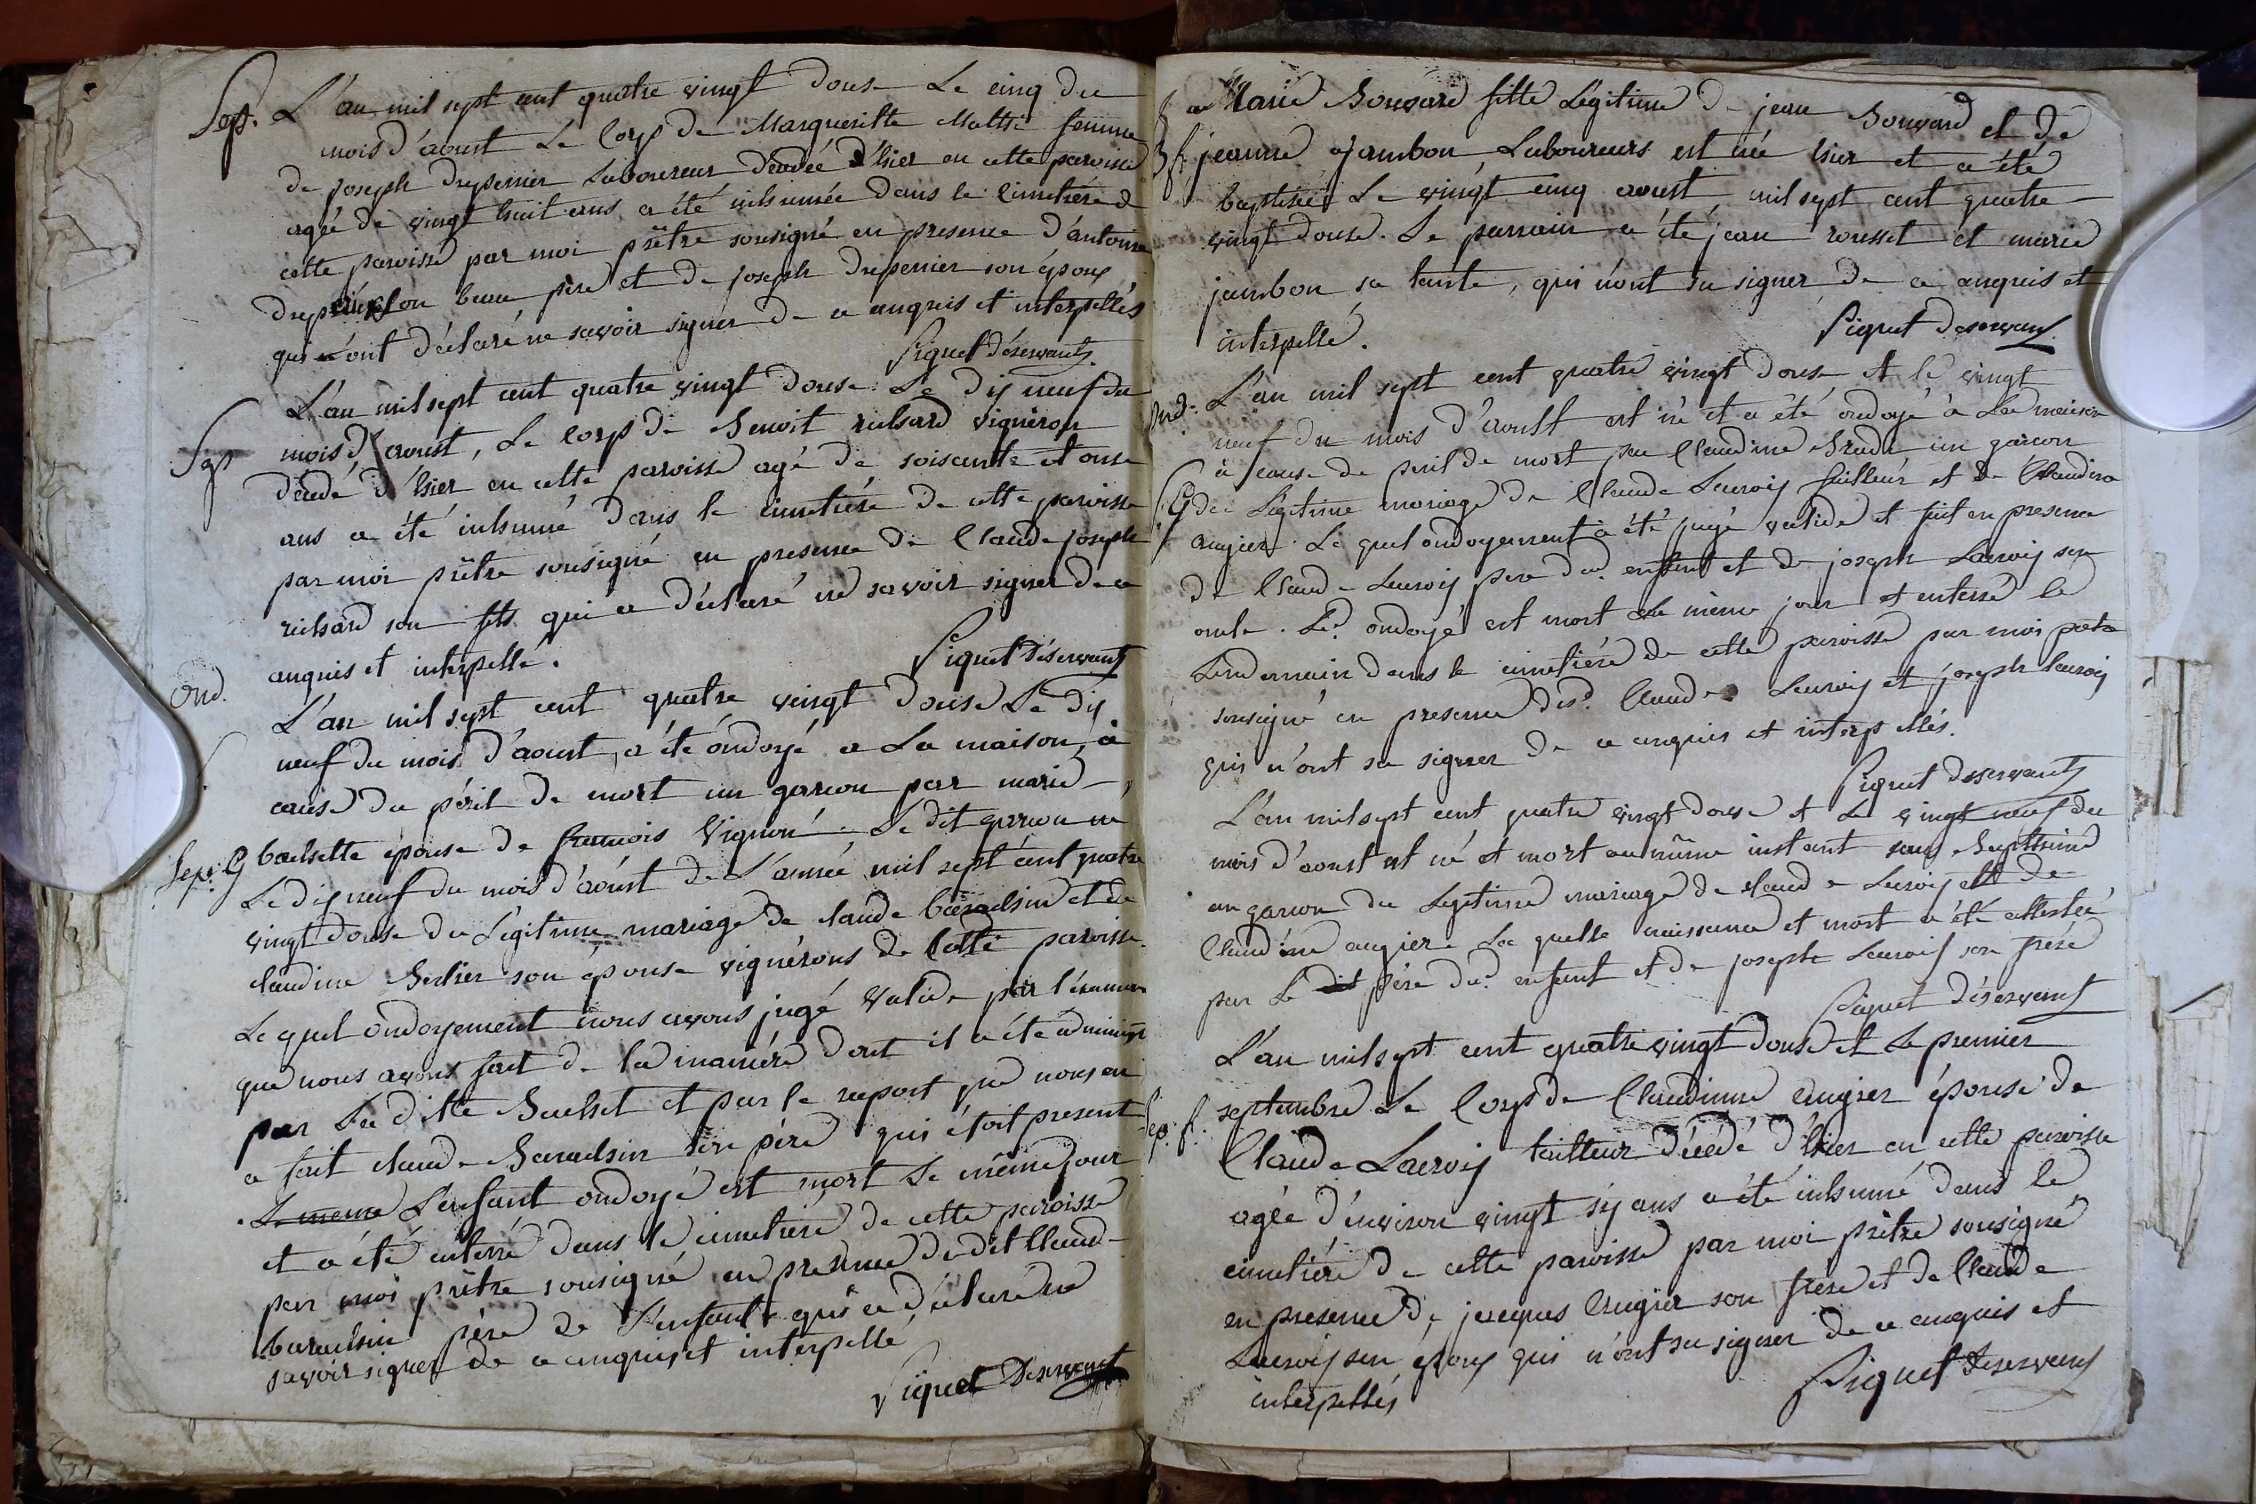 Sep. L'an mil sept cent quatre vingt douse Le cinq du
mois d'aoust Le Corps de Marguerite femme
de joseph laboureur décédée d'hier en cette paroisse
agée de vingt huit ans a été inhumée dans le cimetiére de
cette paroisse par moi prêtre sousigné en presence d'antoine
son beau pére et de joseph son époux
qui n'ont déclaré ne savoir signer de ce enquis et interpellés
Piquet désservant
Sep. L'an mil sept cent quatre vingt douse Le dix neuf du
mois d'aoust, Le Corps de Benoit richard vigneron
décédé d'hier en cette paroisse agé de soisante et onse
ans a été inhumé dans le cimetiére de cette paroisse
par moi prêtre sousigné en presence de Claude joseph
richard son fils qui a déclaré ne savoir signer de ce
enquis et interpellé.
Piquet désservant
Ond. L'an mil sept cent quatre vingt douse Le dix
neuf du mois d'aoust, a été ondoyé a La maison, a
cause du péril de mort un garcon par marie
Sep. G épouse de francois Vignon. Le dit garcon né
Le dix neuf du mois d'aoust de L'année mil sept cent quatre
vingt douse du Légitime mariage de claude baraudsin et de
claudine son épouse vignérons de cette paroisse.
Le quel ondoyement nous avons jugé valide par l'éxamen
que nous avons fait de la maniére dont il a été administré
par La ditte et par le raport que nous en
a fait claude Baraudsin son pére qui étoit present
Le meme L'enfant ondoyé est mort Le même jour
et a été enterré dans le cimetiére de cette paroisse
par moi prêtre sousigné en presence du dit Claude
baraudsin pére de L'enfant qui a déclaré ne
savoir signer de ce enquis et interpellé
Piquet Desservant
Marie Bouvard fille Légitime de jean Bouvard et de
B f. jeanne jambon, Laboureurs est née hier et a été
baptisée Le vingt cinq aoust, mil sept cent quatre
vingt douse. Le parrain a été jean rousset et marie
jambon sa tante, qui n'ont su signer de ce enquis et
interpellé.
Piquet desservant
Ond. L'an mil sept cent quatre vingt douse et le vingt
neuf du mois d'aoust est né et a été ondoyé à La maison
à cause de peril de mort par Claudine un garcon
G de Légitime mariage de Claude Lacroix tailleur et de Claudine
augier. Le quel ondoyement a été jugé valide et fait en presence
de Claude Lacroix pere dud. enfent et de joseph Lacroix son
oncle. Led. ondoyé est mort le même jour et enterré le
Lendemain dans le cimetiére de cette paroisse par moi pretre
sousigné en presence desd. Claude Lacroix et joseph lacroix
qui n'ont su signer de ce enquis et interpellés.
Piquet desservant
L'an mil sept cent quatre vingt douse et Le vingt neuf du
mois d'aoust est né et mort au même instant sans Baptême
un garcon du Légitime mariage de claude Lacroix et de
Claudine augier. La quelle naissance et mort a été attestée
par le dit pére dud. enfant et de joseph Lacroix son frére
Piquet désservant
L'an mil sept cent quatre vingt douse et Le premier
Sep. f. septembre Le Corps de Claudinne augier épouse de
Claude Lacroix tailleur décédé d'hier en cette paroisse
agée d'environ vingt six ans a été inhumé dans le
cimetiére de cette paroisse par moi prêtre sousigné
en presence de jacques augier son frere et de Claude
Lacroix son époux qui n'ont su signer de ce enquis et
interpellés
Piquet desservant